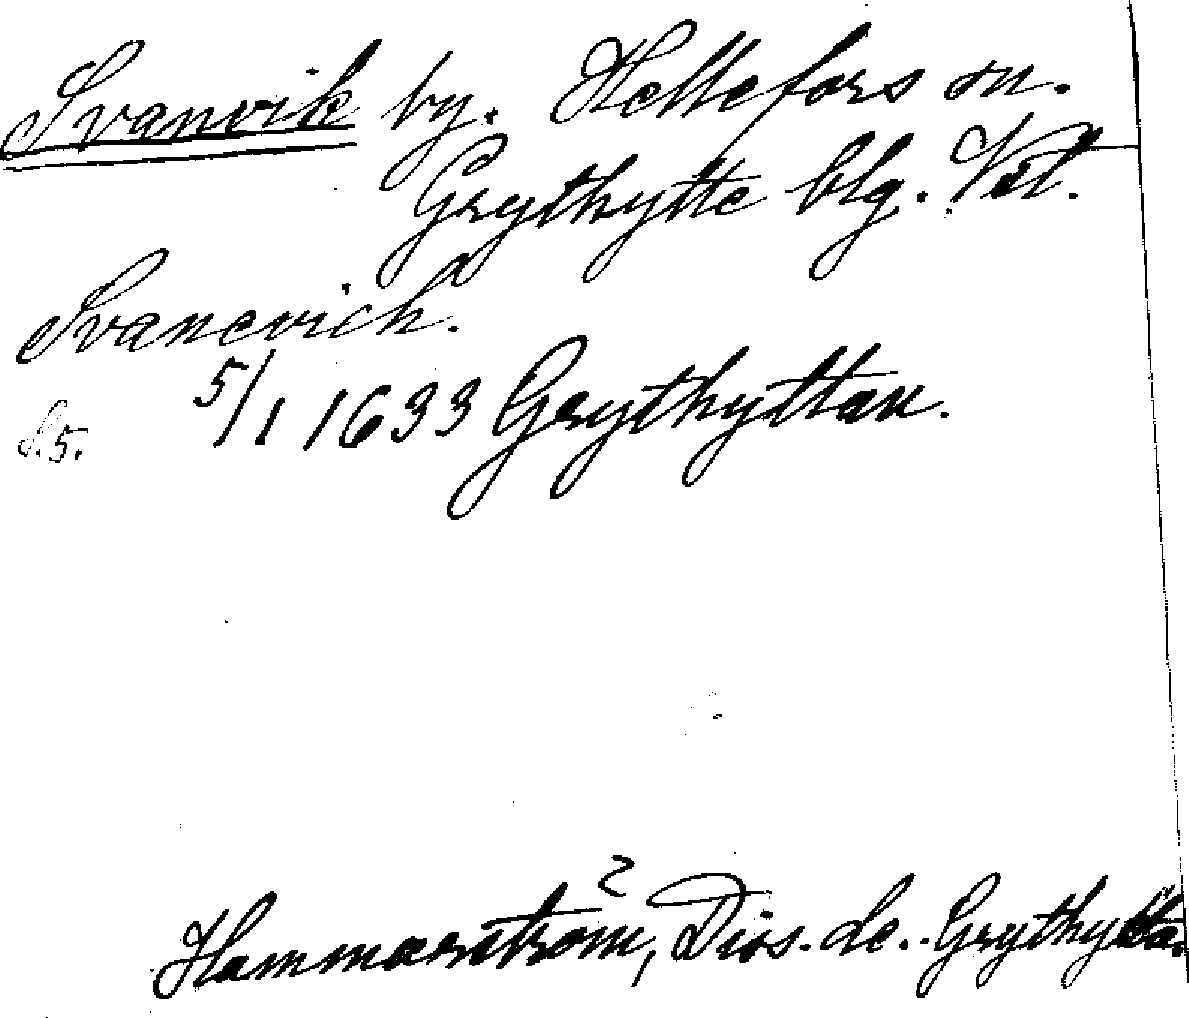 Svanvik by. Hellefors sn.
Grythytte blg. Vstl.
Svanevich.
S. 5. 5/1 1633 Grythyttan.
2
Hammarström, Diss. de. Grythytta.